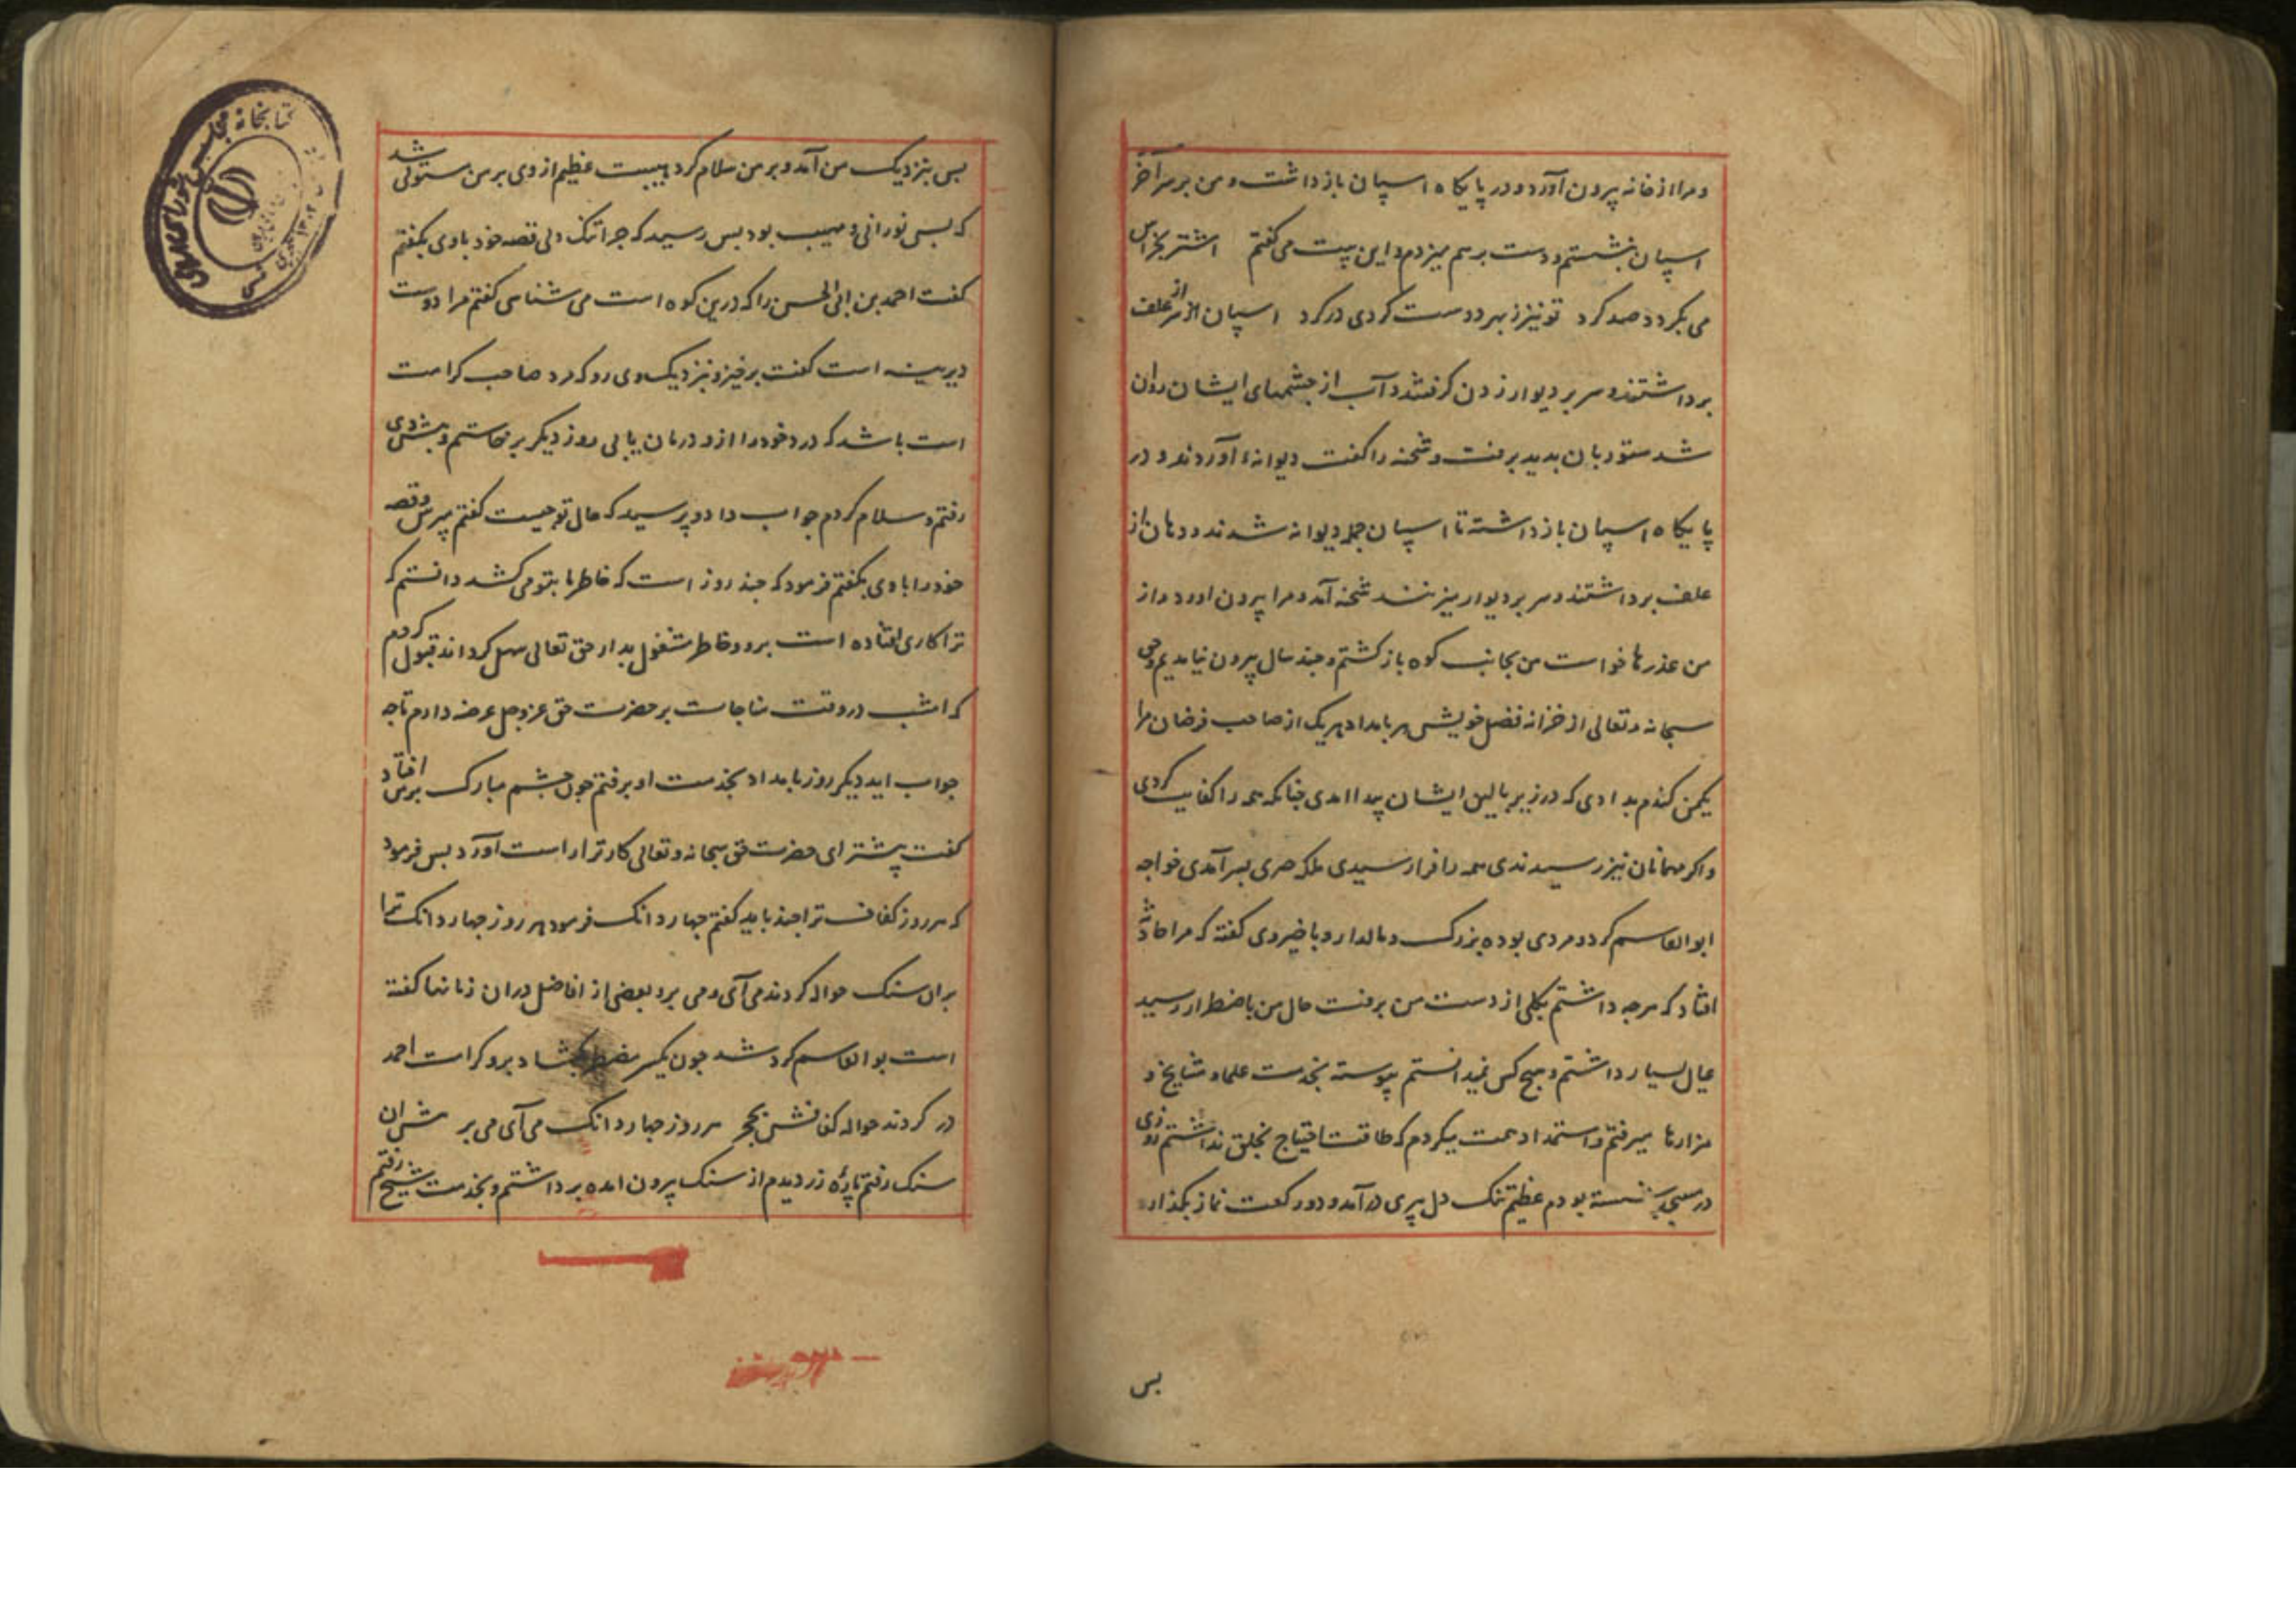 و مرا از خانه بیرون آورد و در پایکاه اسپان بازداشت و من بر سر آخر
اسپان بنشستم و دست برهم میزدم و این بیت می کفتم اشتر بخراس
می بکردد صد کرد تو نیز ز بهر دوست کردی درکرد اسپان از سر علف
برداشتند و سر بر دیوار زدن کرفتند و آب از چشمهای ایشان روان
شد ستوربان بدید برفت و شحنه را کفت دیوانهٔ آوردند و در
پایکاه اسپان بازداشته تا اسپان جمله دیوانه شدند و دهان از
علف برداشتند و سر بر دیوار میزنند شحنه آمد و مرا بیرون اورد و از
من عذرها خواست من بجانب کوه باز کشتم و چند سال بیرون نیامدیم و حق
سبحانه و تعالی از خزانه فضل خویش هر بامداد هر یک از صاحب فرضان مرا
یکمن کندم بدادی که در زیر بالین ایشان پیدا امدی چنانکه همه را کفایت کردی
و اکر مهمانان نیز رسیدندی همه را فرا رسیدی بلکه چیزی بسر آمدی خواجه
ابوالقاسم کرد و مردی بوده بزرک و مالدار و با خیر وی کفته که مرا حادثه
افتاد که هرچه داشتم بکلی از دست من برفت حال من باضطرار رسید
عیال بسیار داشتم و هیچ کس نمیدانستم پیوسته بخدمت علما و مشایخ و
مزارها میرفتم و استمداد همت میکردم که طاقت احتیاج بخلق نداشتم روزی
در مسجد نشسته بودم عظیم تنک دل پیری در آمد و دو رکعت نماز بکذارد
بس
بس بنزدیک من آمد و بر من سلام کرد هیبت عظیم از وی بر من مستولی شد
که بس نورانی و مهیب بود بس رسید که چرا تنک دلی قصه خود باوی بکفتم
کفت احمد بن ابی الحسن را که درین کوه است می شناسی کفتم مرا دوست
دیرینه است کفت برخیز و نزدیک وی رو که مرد صاحب کرامت
است باشد که درد خود را ازو درمان یابی روز دیکر برخاستم و بیش وی
رفتم و سلام کردم جواب داد و پرسید که حال تو چیست کفتم مپرس و قصه
خود را با وی بکفتم فرمود که چند روز است که خاطر ما بتو می کشد دانستم که
ترا کاری افتاده است برو و خاطر مشغول مدار حق تعالی سهل کرداند قبول کردم
که امشب در وقت مناجات بر حضرت حق عز و جل عرضه دارم تا چه
جواب اید دیکر روز بامداد بخدمت او برفتم چون چشم مبارک برمن افتاد
کفت پیشتر ای حضرت حق سبحانه و تعالی کار ترا راست آورد بس فرمود
که هر روز کفاف ترا چند باید کفتم چهار دانک فرمود هر روز چهار دانک ترا
بران سنک حواله کردند می آی و می بر و بعضی از افاضل دران زمانها کفته
است بوالقاسم کرد شد چون یکسر مضطر بکشاد برو کرامت احمد
در کردند حواله کفافش بحجر هر روز چهار دانک می آی می بر بیش ان
سنک رفتم پارهٔ زر دیدم از سنک بیرون امده برداشتم و بخدمت شیخ رفتم
کتابخانه مجلس شورای اسلامی